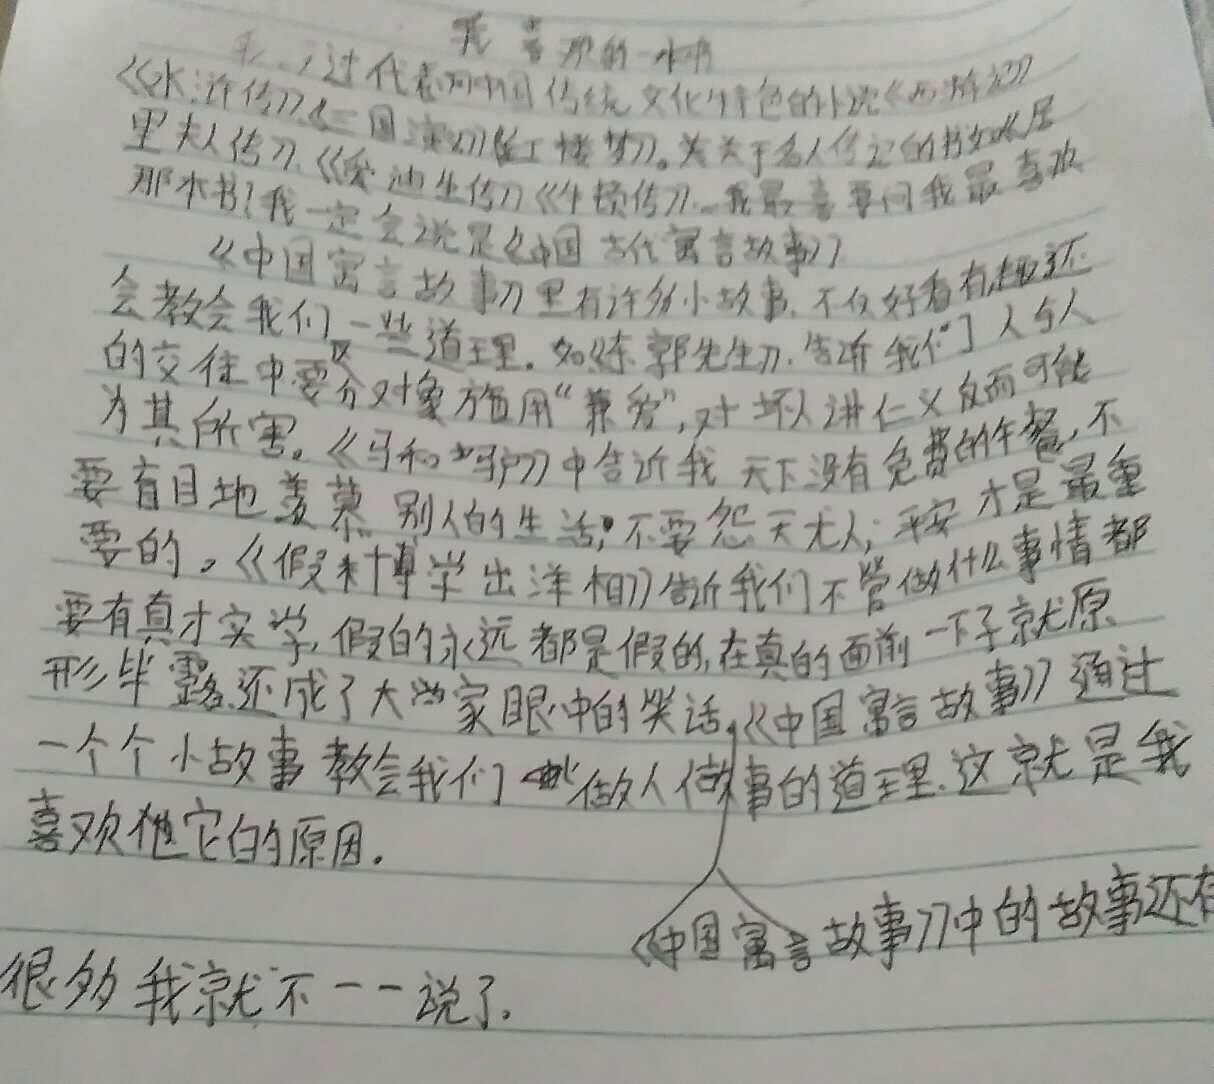 我喜欢的一本书
我 过代表咱中国传统文化特色的小说《西游记》
《水浒传》《三国演义》《红楼梦》。关于名人传记的书如《居
里夫人传》、《爱迪生传》《牛顿传》、我最喜要问我最喜欢
那本书?我一定会说是《中国古代寓言故事》
《中国寓言故事》里有许多小故事、不仅好看有趣还
会教会我们一些道理。如《东郭先生》、告诉我们人与人
的交往中要区分对象施用“兼爱”,对坏人讲仁义反而可能
为其所害。《马和驴》中告诉我天下没有免费的午餐,不
要盲目地羡慕别人的生活;不要怨天尤人;平安才是最重
要的。《假博学出洋相》告诉我们不管做什么事情都
要有真才实学,假的永远都是假的,在真的面前一下子就原
形毕露还成了大家眼中的笑话,《中国寓言故事》通过
一个个小故事教会我们一些做人做事的道理.这就是我
喜欢它的原因.
《中国寓言故事》中的故事还有
很多我就不一一说了.